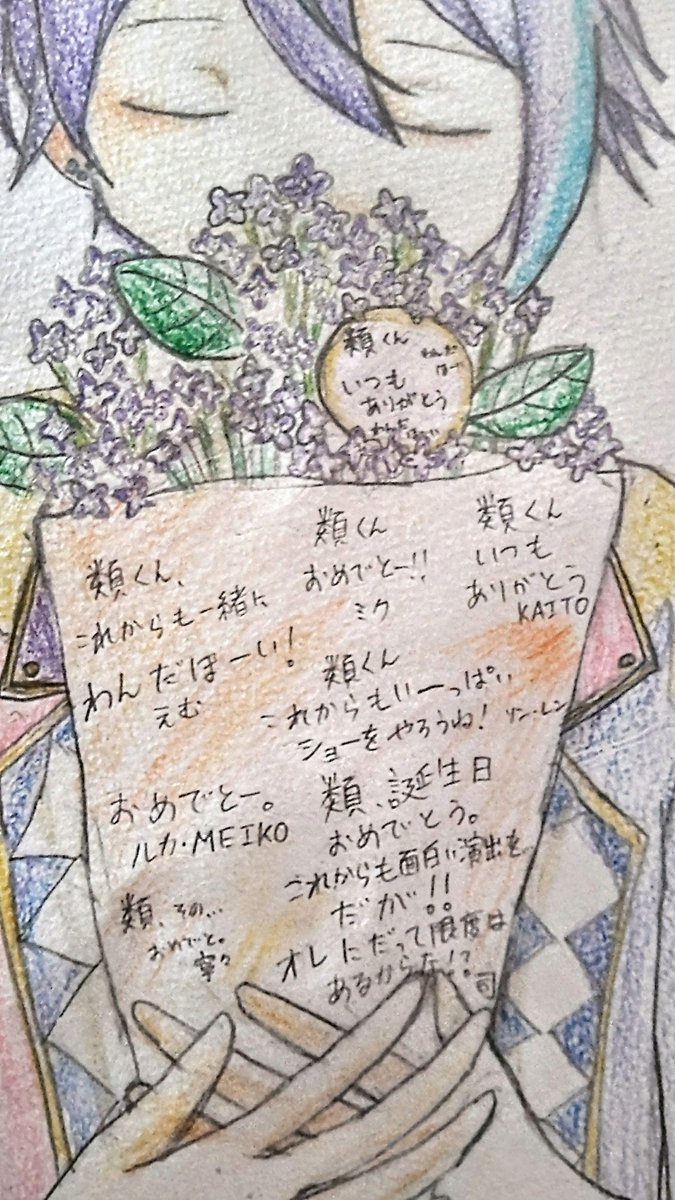 類くん
わんだ
ほー
いつも
ありがとう
わんだ
類くん
おめでとー!!
ミク
類くん
いつも
ありがとう
KAITO
類くん、
これからも一緒に
わんだほーい!
えむ
類くん
これからもいーっぱい
ショーをやろうね! リン・レン
おめでとー。
ルカ・MEIKO
類、誕生日
おめでとう。
これからも面白い演出を
だが!!
オレにだって限度は
あるからな!? 司
類、その…
おめでと。
寧々